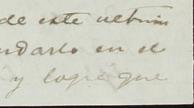 de este ultimo
darlo en el
y logre que